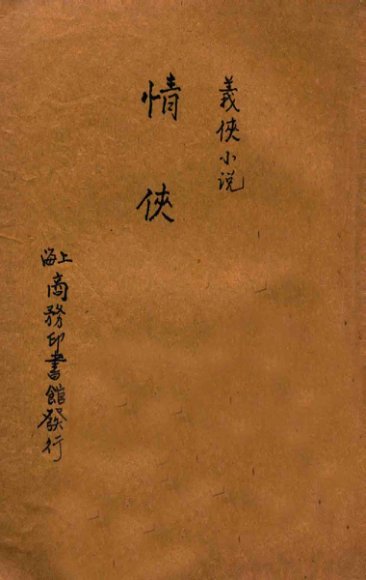 義俠小说
情俠
上海商務印書館發行